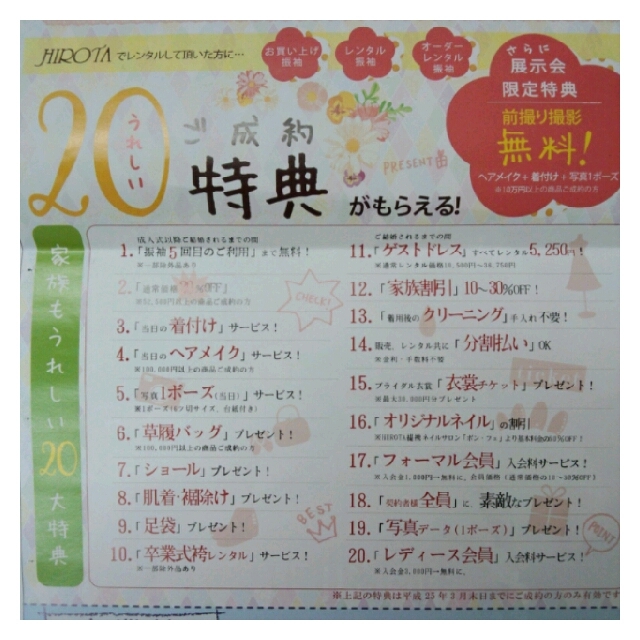 HIROTAでレンタルして頂いた方に…
お買い上げ
振袖
レンタル
振袖
オーダー
レンタル
振袖
さらに
展示会
限定特典
前撮り撮影
無料!
ヘアメイク+着付け+写真1ポーズ
※10万円以上の商品ご成約の方
うれしい
20
ご成約
特典
がもらえる!
PRESENT
家族もうれしい20大特典
成人式以降ご結婚されるまでの間
1.「振袖5回目のご利用」まで無料!
※一部除外品あり
2.「通常価格 %OFF」
3.「当日の着付け」サービス!
4.「当日のヘアメイク」サービス!
※100,000円以上の商品ご成約の方
5.「写真1ポーズ(当日)」サービス!
※1ポーズ(6ツ切サイズ、台紙付き)
6.「草履バッグ」プレゼント!
※100,000円以上の商品ご成約の方
7.「ショール」プレゼント!
8.「肌着・裾除け」プレゼント!
9.「足袋」プレゼント!
10.「卒業式袴レンタル」サービス!
※一部除外品あり
CHECK!
BEST
ご結婚されるまでの間
11.「ゲストドレス」すべてレンタル5,250円!
※通常レンタル価格10,500円〜36,750円
12.「家族割引」10〜30%OFF!
13.「着用後のクリーニング」手入れ不要!
14.販売、レンタル共に「分割払い」OK
※金利・手数料不要
15.ブライダル衣裳「衣裳チケット」プレゼント!
※最大30,000円分プレゼント
16.「オリジナルネイル」の割引
17.「フォーマル会員」入会料サービス!
18.「契約者様全員」に、素敵なプレゼント!
19.「写真データ(1ポーズ)」プレゼント!
20.「レディース会員」入会料サービス!
※入会金3,000円→無料に。
POINT
※上記の特典は平成25年3月末日までにご成約の方のみ有効です